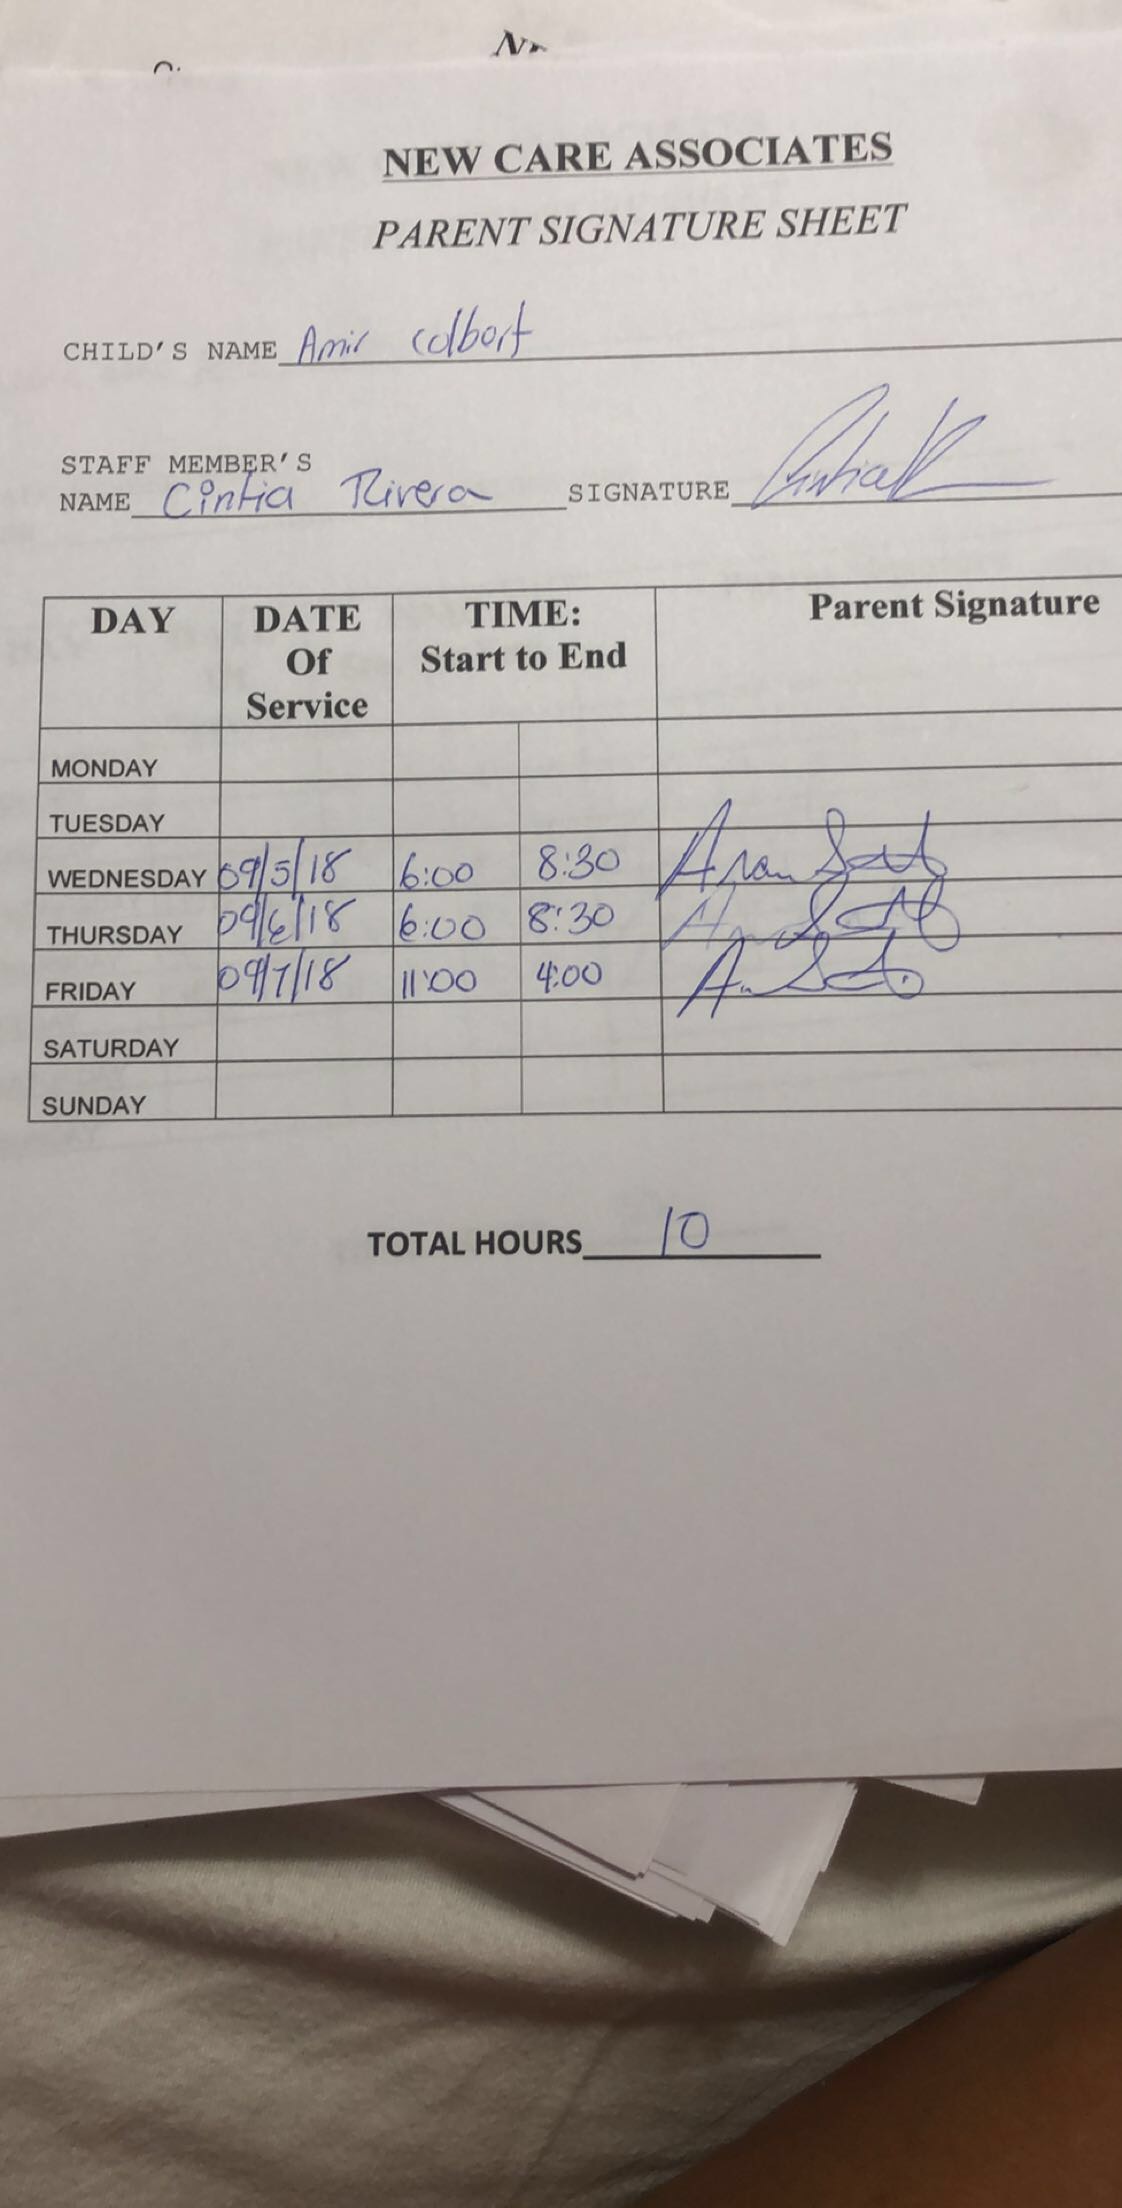 NEW CARE ASSOCIATES
PARENT SIGNATURE SHEET
CHILD'S NAME Amir Colbert
STAFF MEMBER'S
NAME Cintia Rivera SIGNATURE
DAY DATE Of Service TIME: Start to End Parent Signature
MONDAY
TUESDAY
WEDNESDAY 09/5/18 6:00 8:30
THURSDAY 09/6/18 6:00 8:30
FRIDAY 09/7/18 11:00 4:00
SATURDAY
SUNDAY
TOTAL HOURS 10